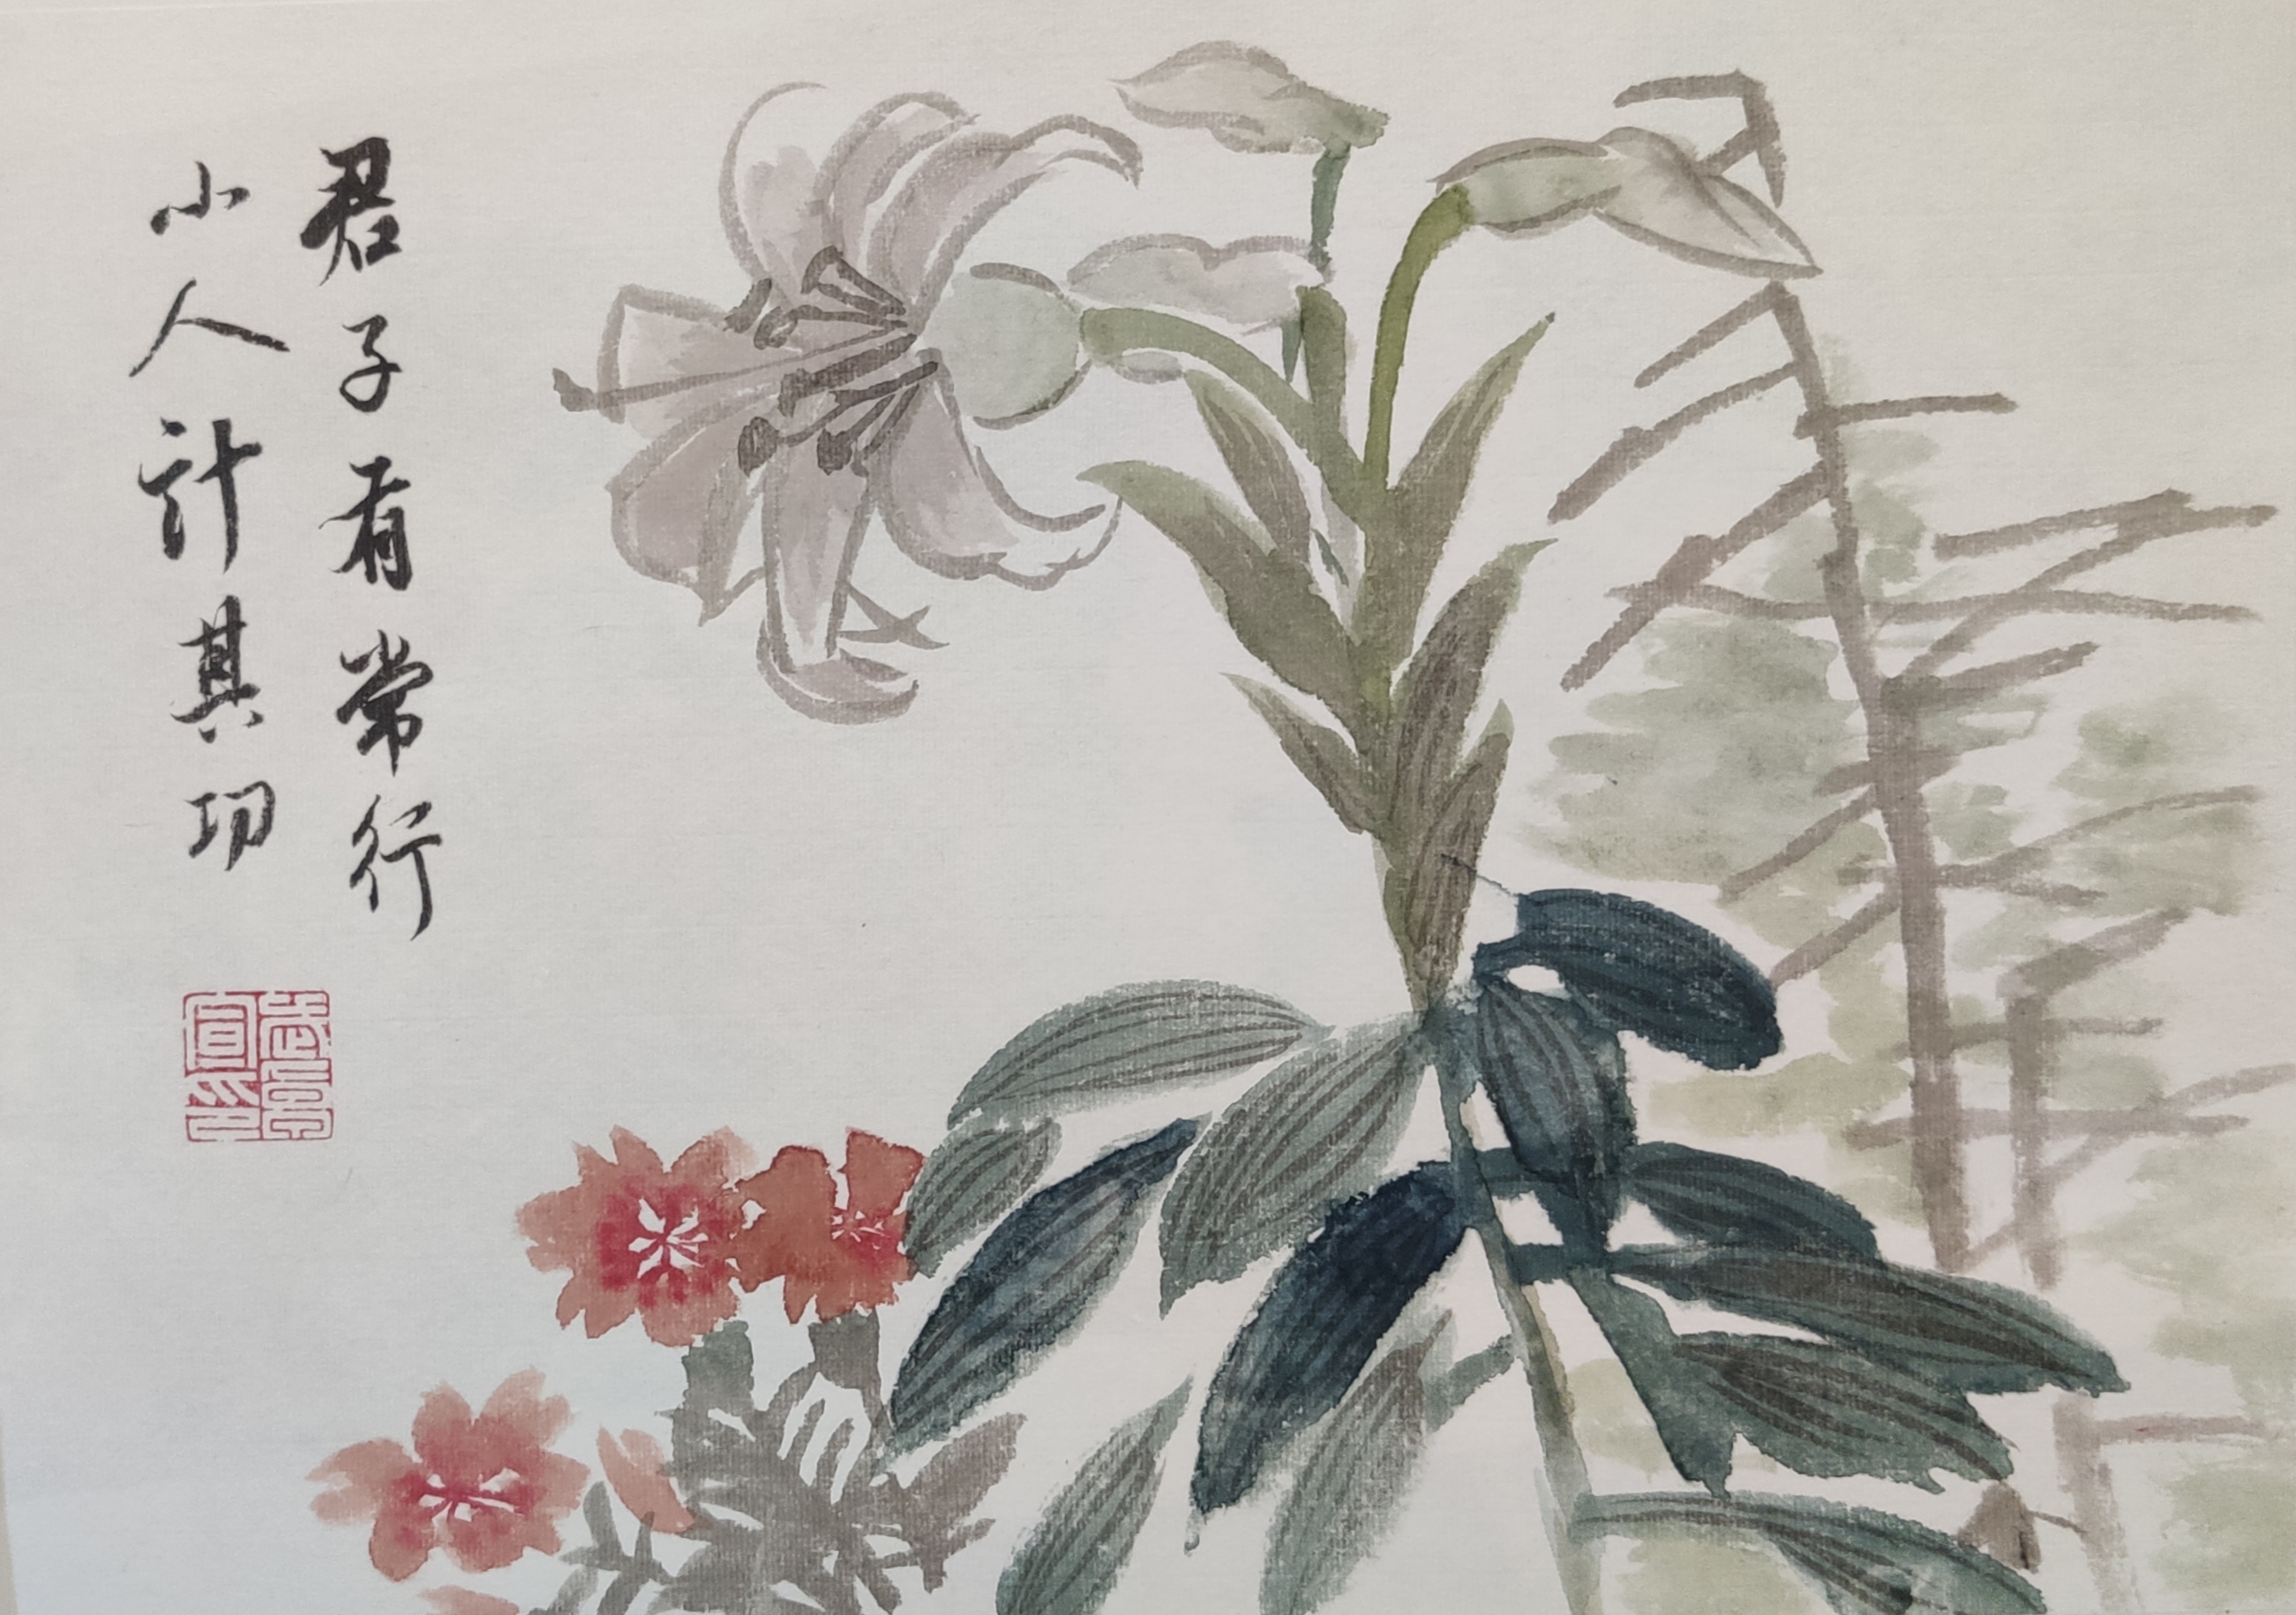 君子有常行
小人計其功